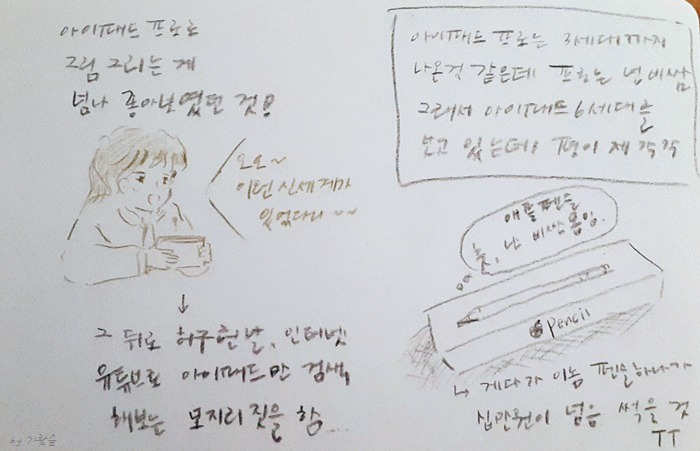 아이패드 프로로
그림 그리는 게
넘나 좋아보였던 것!
오오~
이런 신세계가
있었다니~~
↓
그 뒤로 허구헌날, 인터넷
유튜브로 아이패드만 검색
해보는 모지리 짓을 함....
by 가랑슬
아이패드 프로는 3세대까지
나온것 같은데 프로는 넘 비쌈
그래서 아이패드 6세대를
보고 있는데, 평이 제각각
애플펜슬
훗, 난 비싼 몸임.
Pencil
↳ 게다가 이놈 펜슬하나가
십만원이 넘음 썩을 것
ㅜㅜ